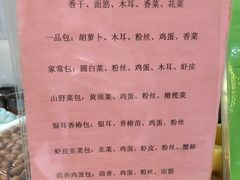 香干、面筋、木耳、香菜、花菜
一品包：胡萝卜、木耳、粉丝、鸡蛋、香菜
家常包：圆白菜、粉丝、鸡蛋、木耳、虾皮
山野菜包：黄须菜、鸡蛋、粉丝、橄榄菜
银耳香椿包：银耳、香椿苗、鸡蛋、粉丝
虾皮韭菜包：韭菜、鸡蛋、虾皮、粉丝、蟹棒
茴香鸡蛋包：茴香、鸡蛋、粉丝、面筋